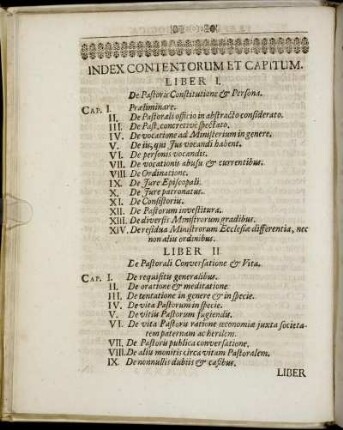 INDEX CONTENTORUM ET CAPITUM.
LIBER I.
De Pastoris Constitutione & Persona.
CAP. I. Præliminare.
II. De Pastorali officio in abstracto considerato.
III. De Past. concretivè spectato.
IV. De vocatione ad Ministerium in genere.
V. De iis, qui Jus vocandi habent.
VI. De personis vocandis.
VII. De vocationis abusu & currentibus.
VIII. De Ordinatione.
IX. De Jure Episcopali.
X. De Jure patronatus.
XI. De Consistoriis.
XII. De Pastorum investitura.
XIII. De diversis Ministrorum gradibus.
XIV. De residua Ministrorum Ecclesiæ differentia, nec
non aliis ordinibus.
LIBER II
De Pastorali Conversatione & Vita.
CAP. I. De requisitis generalibus.
II. De oratione & meditatione
III. De tentatione in genere & in specie.
IV. De vita Pastorum in specie.
V. De vitiis Pastorum fugiendis.
VI. De vita Pastoris ratione œconomiæ juxta societa-
tem paternam ac herilem.
VII. De Pastoris publica conversatione.
VIII. De aliis monitis circa vitam Pastoralem.
IX. De nonnullis dubiis & casibus.
LIBER